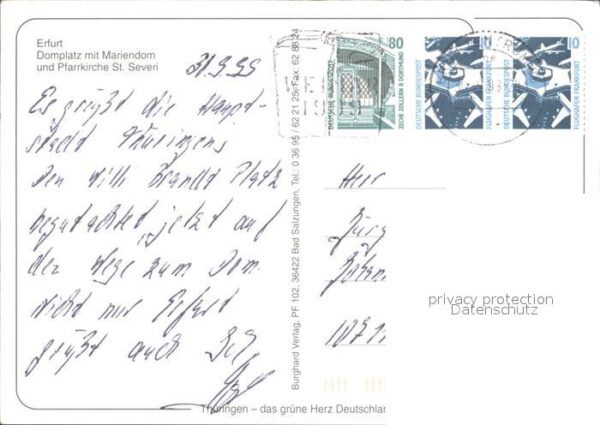 Erfurt
Domplatz mit Mariendom
und Pfarrkirche St. Severi
Es grüßt die Haupt-
stadt Thüringens
Den Willi Brandt Platz
begutachtet, jetzt auf
der Wege zum Dom.
nicht nur Erfurt
grüßt auch
Burghard Verlag, PF 102, 36422 Bad Salzungen, Tel.: 0 36 95 / 62 21 25, Fax: 62 88 24
80
DEUTSCHE BUNDESPOST
ZECHE ZOLLERN II DORTMUND
10
DEUTSCHE BUNDESPOST
FLUGHAFEN FRANKFURT
10
DEUTSCHE BUNDESPOST
FLUGHAFEN FRANKFURT
Herr
privacy protection
Datenschutz
Thüringen – das grüne Herz Deutschlan